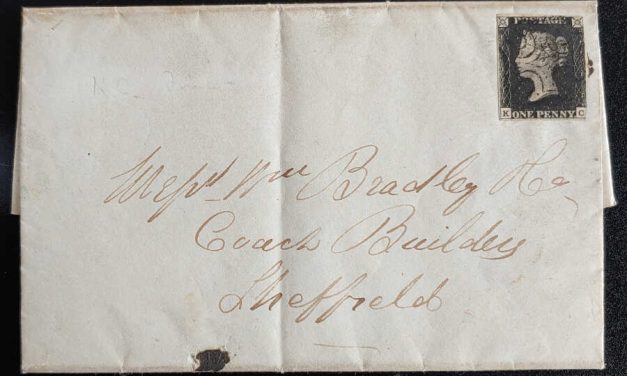 POSTAGE
K ONE PENNY C
KC
Messrs Wm Bradley & Co
Coach Builders
Sheffield